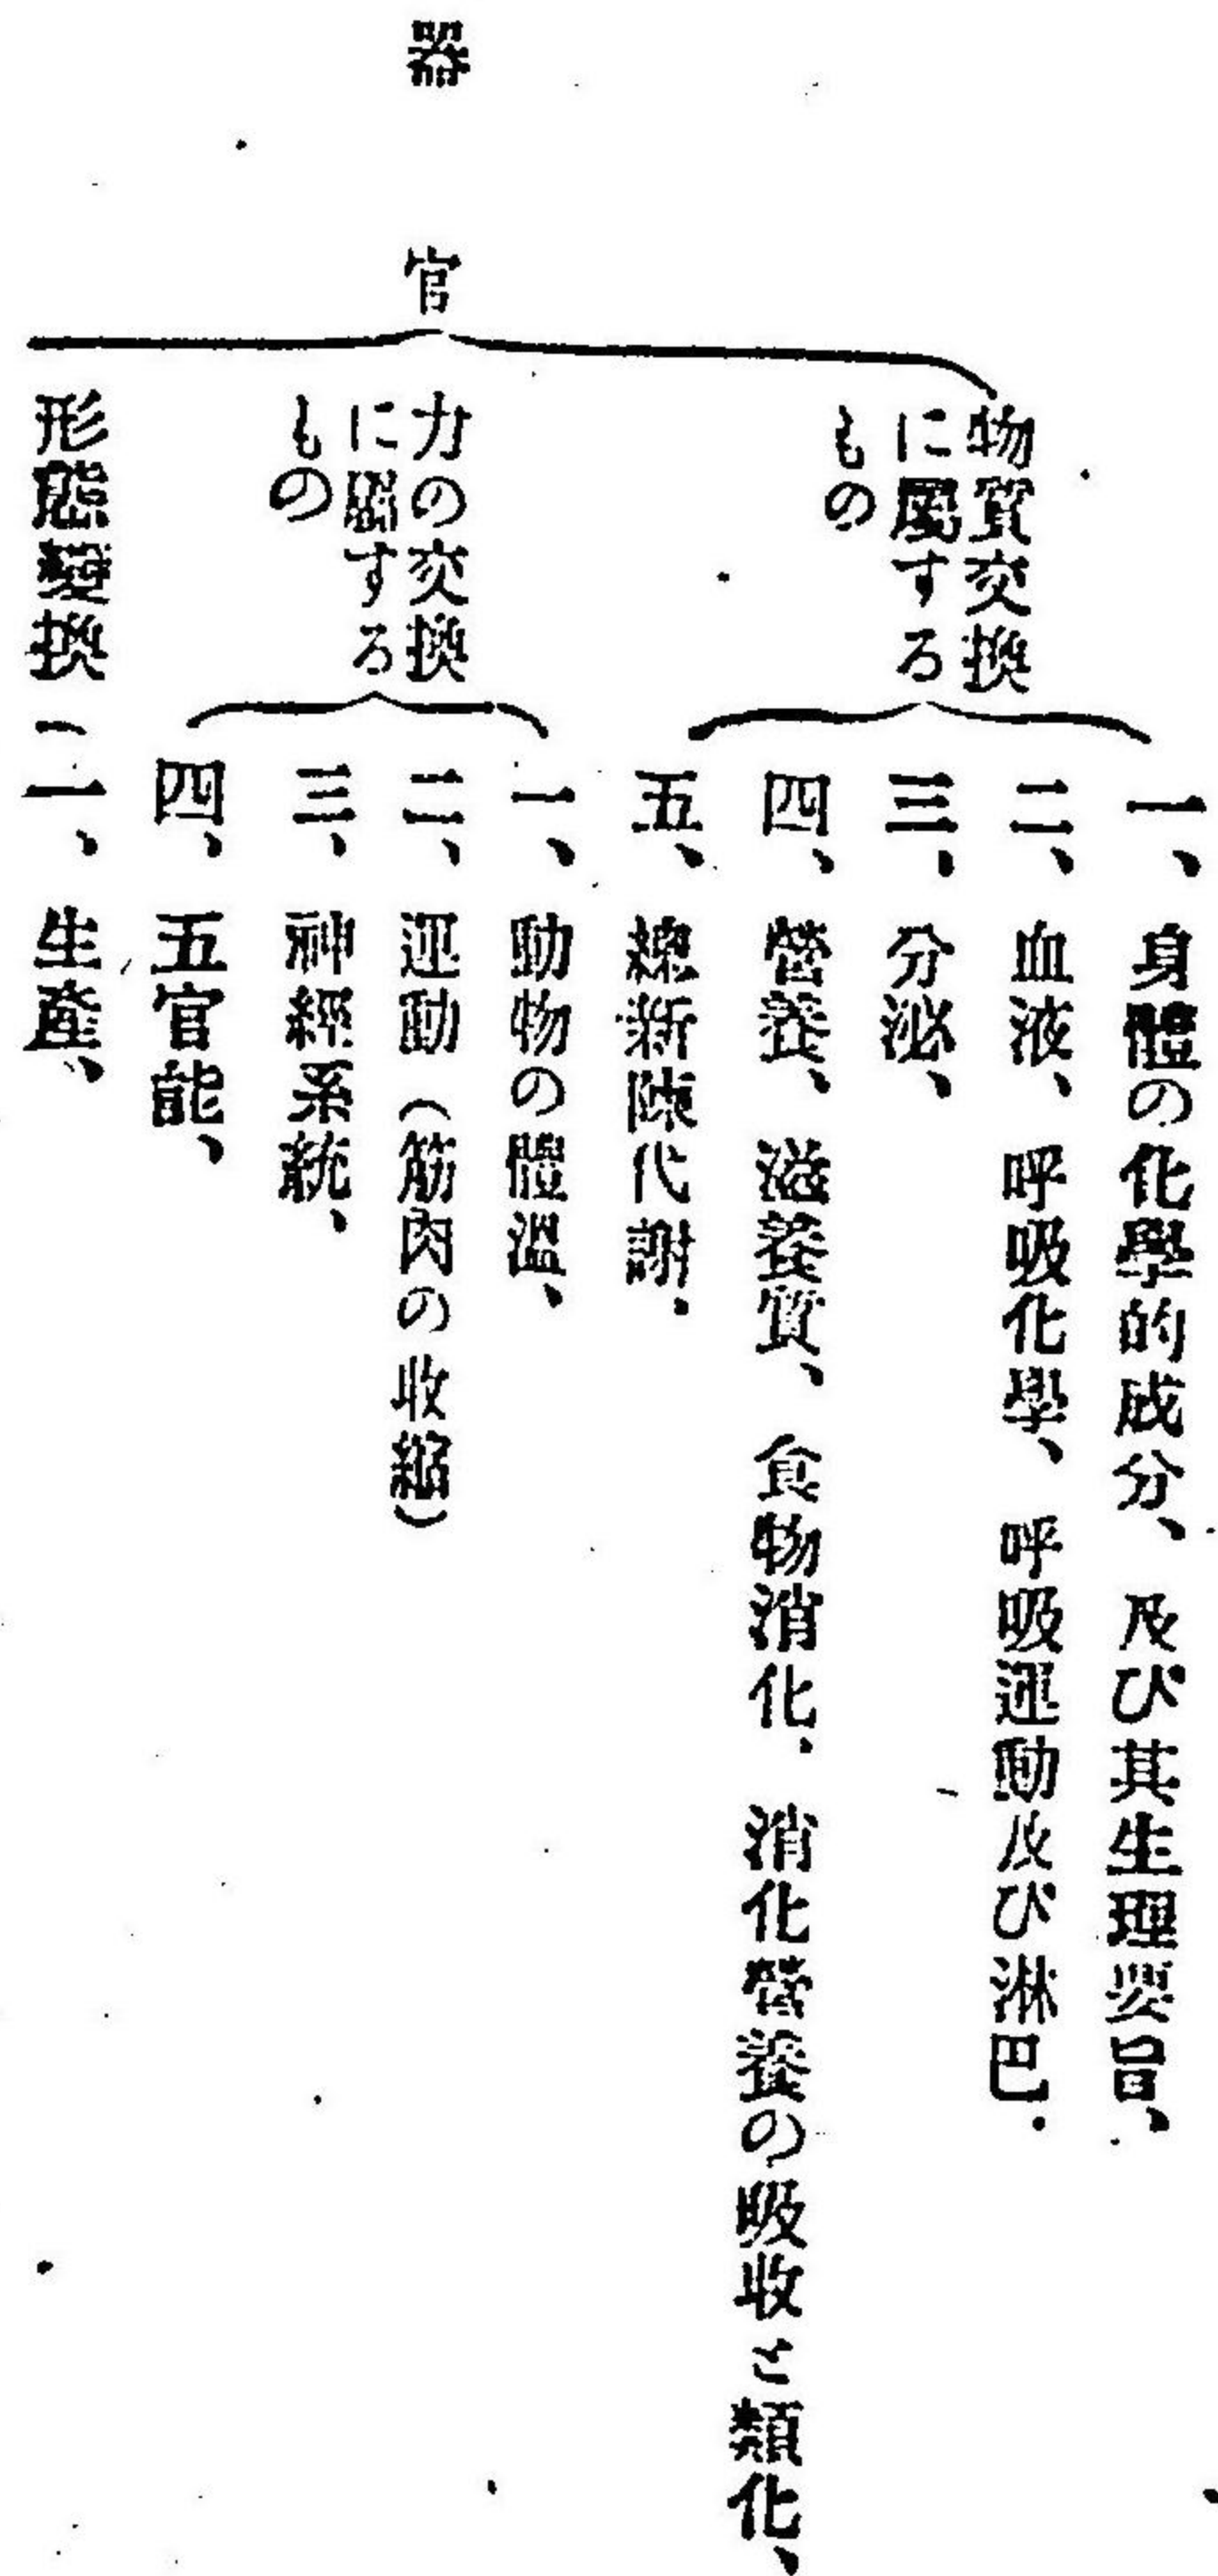 器官
物質交換
に屬する
もの
一、身體の化學的成分、及び其生理要旨、
二、血液、呼吸化學、呼吸運動及び淋巴.
三、分泌、
四、營養、滋養質、食物消化、消化營養の吸收と類化、
五、總新陳代謝.
力の交換
に屬する
もの
一、動物の體溫、
二、運動(筋肉の收縮)
三、神經系統、
四、五官能、
形態變換(一、生產、